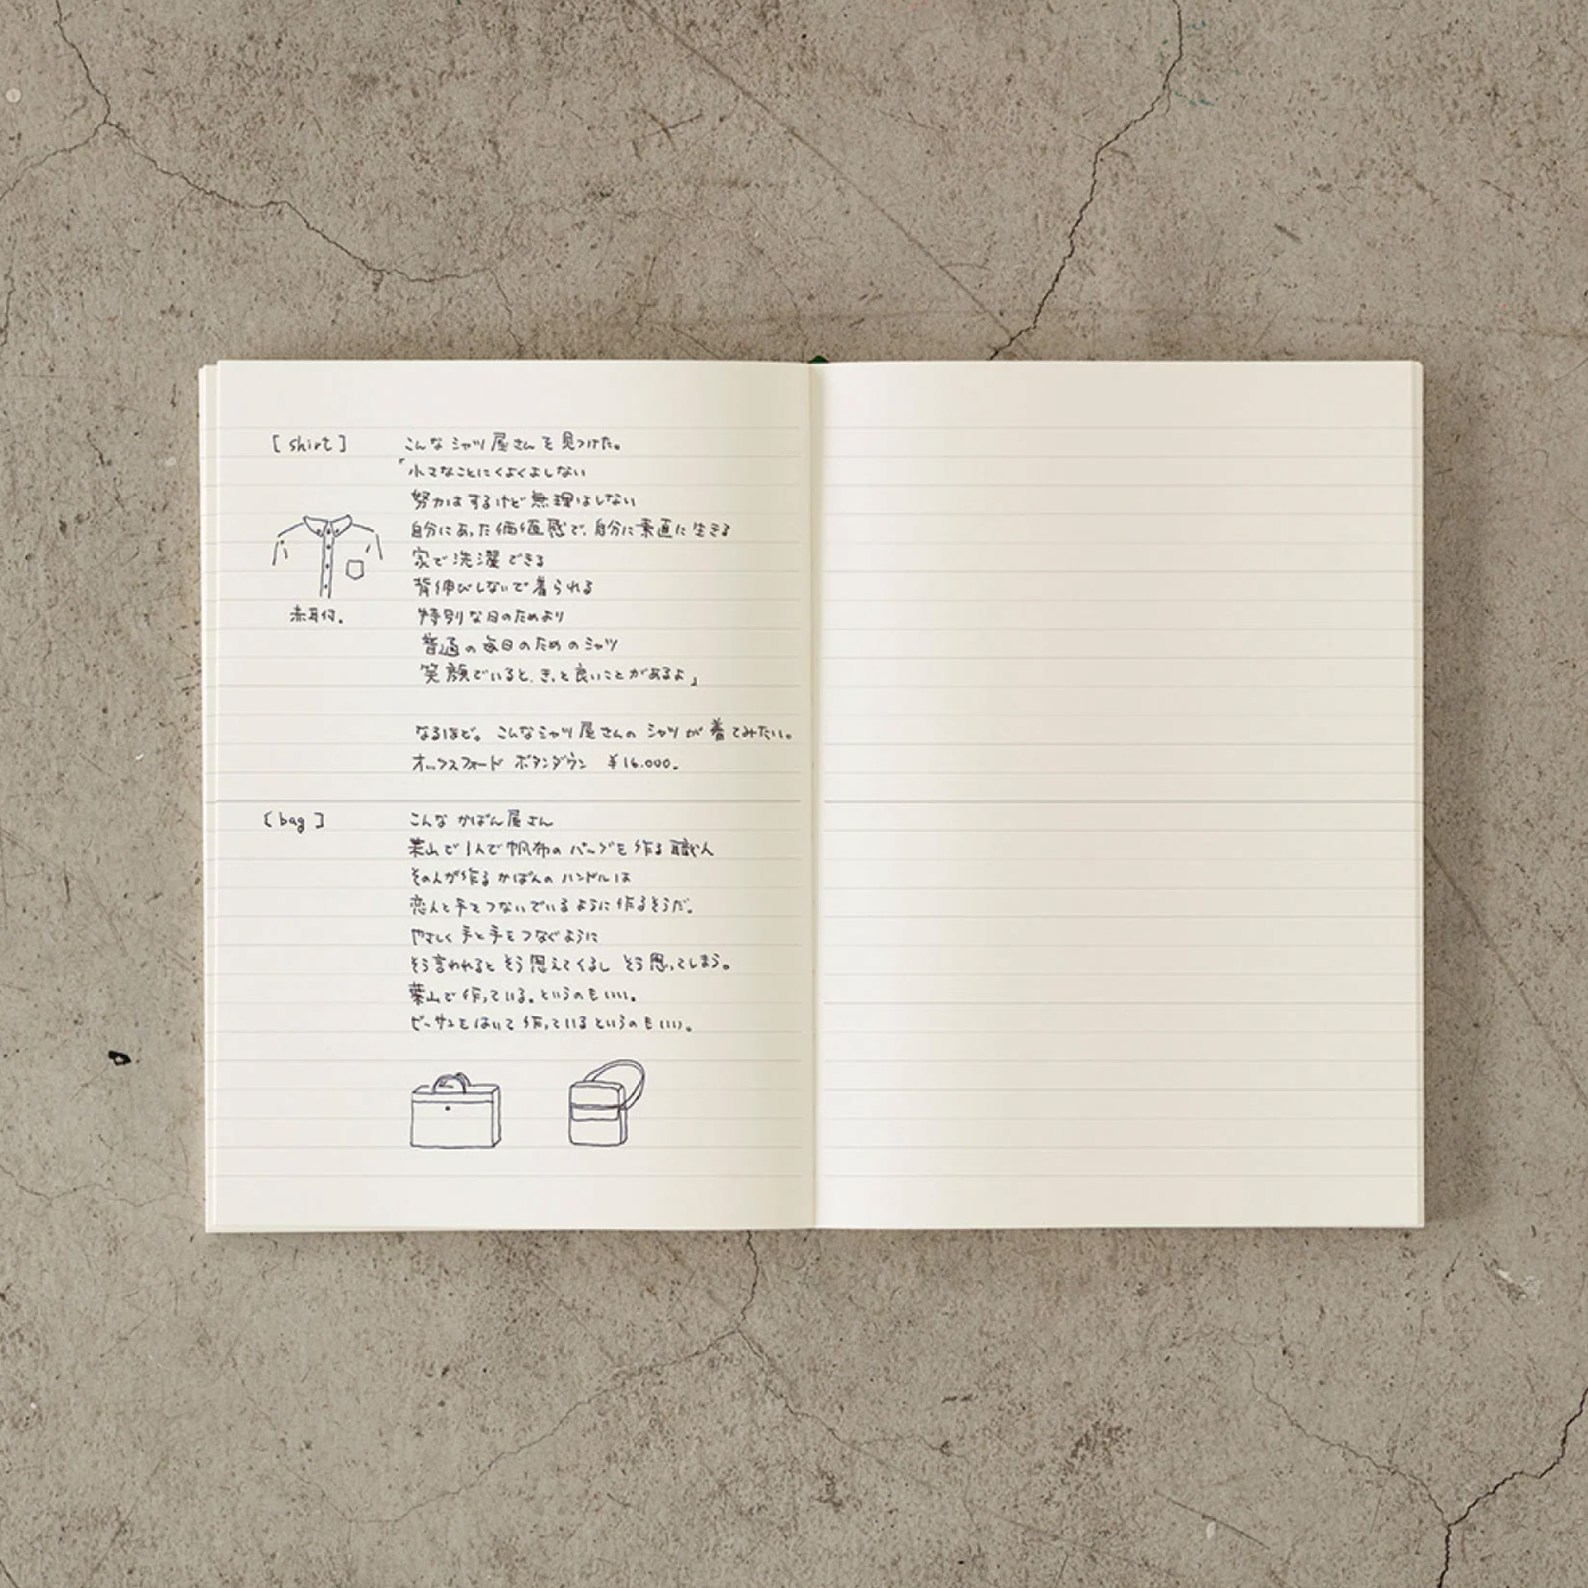 [shirt]
こんなシャツ屋さんを見つけた。
「小さなことにくよくよしない
努力はするけど無理はしない
自分にあった価値感で、自分に素直に生きる
家で洗濯できる
背伸びしないで着られる
赤耳付.
特別な日のためより
普通の毎日のためのシャツ
笑顔でいると、きっと良いことがあるよ」
なるほど。こんなシャツ屋さんのシャツが着てみたい。
オックスフォード ボタンダウン ¥16.000.
[bag]
こんな かばん屋さん
葉山で1人で帆布のバッグを作る職人
その人が作るかばんのハンドルは
恋人と手をつないでいるように作るそうだ。
やさしく手と手をつなぐように
そう言われるとそう思えてくるし そう思ってしまう。
葉山で作っている。というのもいい。
ビーサンをはいて作っているというのもいい。